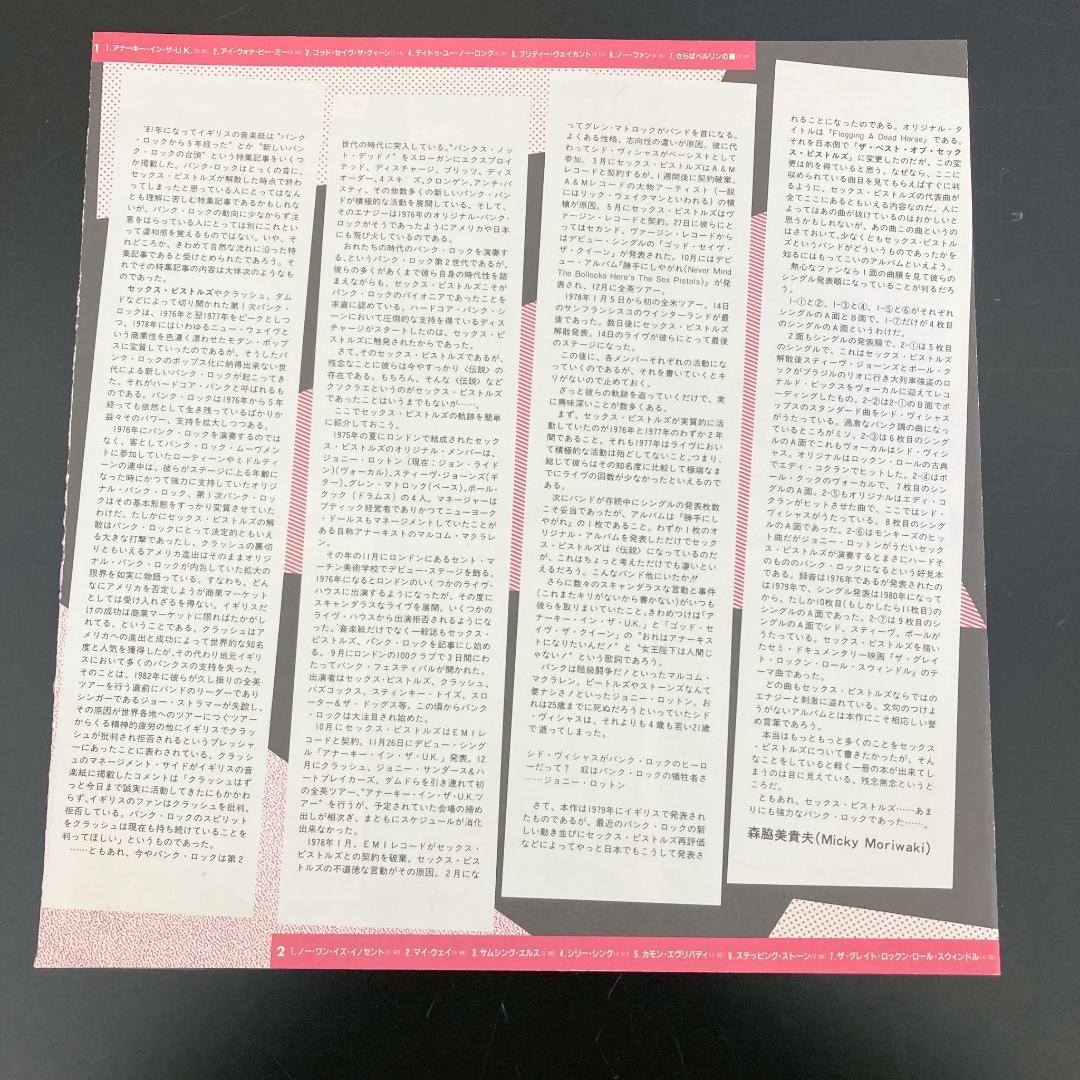 1 1.アナーキー・イン・ザ・U.K. 2.アイ・ウォナ・ビー・ミー 3.ゴッド・セイヴ・ザ・クィーン 4.ディドゥ・ユー・ノー・ロング 5.プリティー・ヴェイカント 6.ノー・ファン 7.さらばベルリンの陽
'81年になってイギリスの音楽紙は"パンク
・ロックから5年経った"とか"新しいパン
ク・ロックの台頭"という特集記事をいくつ
か掲載した。パンク・ロックはとっくの昔に、
セックス・ピストルズが解散した時点で終わ
ってしまったと思っている人にとってはなん
とも理解に苦しむ特集記事であるかもしれな
いが、パンク・ロックの動向に少なからず注
意をはらっている人にとっては別にこれとい
って違和感を覚えるものではない。いや、そ
れどころか、きわめて自然な流れに沿った特
集記事であると受けとめられたであろう。そ
れでその特集記事の内容は大体次のようなも
のであった。
セックス・ピストルズやクラッシュ、ダム
ドなどによって切り開かれた第1次パンク・
ロックは、1976年と翌1977年をピークとしつ
つ、1978年にはいわゆるニュー・ウェイヴと
いう商業性を色濃く漂わせたモダン・ポップ
スに変質していったのであるが、そうしたパ
ンク・ロックのポップス化に納得出来ない世
代による新しいパンク・ロックが起こってき
た。それがハードコア・パンクと呼ばれるも
のである。パンク・ロックは1976年から5年
経っても依然として生き残っているばかりか
益々そのパワー、支持を拡大しつつある。
1976年にパンク・ロックを演奏するのでは
なく、客としてパンク・ロック・ムーヴメン
トに参加していたローティーンやミドルティ
ーンの連中は、彼らがステージに上る年齢に
なった時にかつて強力に支持していたオリジ
ナル・パンク・ロック、第1次パンク・ロッ
クはその基本形態をすっかり変質させていた
わけだ。たしかにセックス・ピストルズの解
散はパンク・ロックにとって決定的ともいえ
る大きな打撃であったし、クラッシュの裏切
りともいえるアメリカ進出はそのままオリジ
ナル・パンク・ロックが内包していた拡大の
限界を如実に物語っている。すなわち、どん
なにアメリカを否定しようが商業マーケット
としては受け入れざるを得ない。イギリスだ
けの成功は商業マーケットに限ればたかがし
れてる、ということである。クラッシュはア
メリカへの進出と成功によって世界的な知名
度と人気を獲得したが、その代わり地元イギリ
スにおいて多くのパンクスの支持を失った。
そのことは、1982年に彼らが久し振りの全英
ツアーを行う直前にバンドのリーダーであり
シンガーであるジョー・ストラマーが失踪し、
その原因が世界各地へのツアーにつぐツアー
からくる精神的疲労の他にイギリスでクラッ
シュが批判され拒否されるというプレッシャ
ーにあったことに表わされている。クラッシ
ュのマネージメント・サイドがイギリスの音
楽紙に掲載したコメントは「クラッシュはず
っと今日まで誠実に活動してきたにもかかわ
らず、イギリスのファンはクラッシュを批判、
拒否している。パンク・ロックのスピリット
をクラッシュは現在も持ち続けていることを
判ってほしい」というものであった。
……ともあれ、今やパンク・ロックは第2
世代の時代に突入している。"パンクス・ノッ
ト・デッドノ"をスローガンにエクスプロイ
テッド、ディスチャージ、ブリッツ、ディス
オーダー、4スキンズ、クロンゲン、アンチ・パ
スティ、その他数多くの新しいパンク・バン
ドが積極的な活動を展開している。そして、
そのエナジーは1976年のオリジナル・パンク・
ロックがそうであったようにアメリカや日本
にも飛び火しているのである。
おれたちの時代のパンク・ロックを演奏す
る、というパンク・ロック第2世代であるが、
彼らの多くがあくまで彼ら自身の時代性を踏
まえながらも、セックス・ピストルズこそが
パンク・ロックのパイオニアであったことを
率直に認めている。ハードコア・パンク・シ
ーンにおいて圧倒的な支持を得ているディス
チャージがスタートしたのは、セックス・ピ
ストルズに触発されたからであった。
さて、そのセックス・ピストルズであるが、
残念なことに彼らは今やすっかり〈伝説〉の
存在である。もちろん、そんな〈伝説〉など
クソクラエというのがセックス・ピストルズ
であったことはいうまでもないが……。
ここでセックス・ピストルズの軌跡を簡単
に紹介しておこう。
1975年の夏にロンドンで結成されたセック
ス・ピストルズのオリジナル・メンバーは、
ジョニー・ロットン(現在：ジョン・ライド
ン)(ヴォーカル)、スティーヴ・ジョーンズ(ギ
ター)、グレン・マトロック(ベース)、ポール・
クック(ドラムス)の4人。マネージャーは
ブティック経営者でありかつてニューヨーク
・ドールスもマネージメントしていたことが
ある自称アナーキストのマルコム・マクラレ
ン。
その年の11月にロンドンにあるセント・マ
ーチン美術学校でデビュー・ステージを飾る。
1976年になるとロンドンのいくつかのライヴ・
ハウスに出演するようになったが、その度に
スキャンダラスなライヴを展開。いくつかの
ライヴ・ハウスから出演拒否されるようにな
った。音楽紙だけでなく一般誌もセックス・
ピストルズ、パンク・ロックを記事にし始め
る。9月にロンドンの100クラブで3日間にわ
たってパンク・フェスティバルが開かれた。
出演者はセックス・ピストルズ、クラッシュ、
バズコックス、スティンキー・トイズ、スロ
ーター&ザ・ドッグス等。この頃からパンク
・ロックは大注目され始めた。
10月にセックス・ピストルズはEMIレ
コードと契約。11月26日にデビュー・シング
ル「アナーキー・イン・ザ・U.K.」発表。12
月にクラッシュ、ジョニー・サンダース&ハ
ートブレイカーズ、ダムドらを引き連れて初
の全英ツアー、"アナーキー・イン・ザ・U.K.ツ
アー"を行うが、予定されていた会場の締め
出しが相次ぎ、まともにスケジュールが消化
出来なかった。
1978年1月、EMIレコードがセックス・
ピストルズとの契約を破棄。セックス・ピス
トルズの不道徳な言動がその原因。2月にな
ってグレン・マトロックがバンドを首になる。
よくある性格、志向性の違いが原因。彼に代
わってシド・ヴィシャスがベーシストとして
参加。3月にセックス・ピストルズはA&M
レコードと契約するが、1週間後に契約破棄。
A&Mレコードの大物アーティスト(一説
にはリック・ウェイクマンといわれる)の横
槍が原因。5月にセックス・ピストルズはヴ
ァージン・レコードと契約。27日に彼らにと
ってはセカンド、ヴァージン・レコードから
はデビュー・シングルの「ゴッド・セイヴ・
ザ・クイーン」が発売された。10月にはデビ
ュー・アルバム『勝手にしやがれ(Never Mind
The Bollocks Here's The Sex Pistols)』が発
表され、12月に全英ツアー。
1978年1月5日から初の全米ツアー。14日
のサンフランシスコのウインターランドが最
後であった。数日後にセックス・ピストルズ
解散発表。14日のライヴが彼らにとって最後
のステージになった。
この後に、各メンバーそれぞれの活動にな
っていくのであるが、それを書いていくとキ
リがないので止めておく。
ざっと彼らの軌跡を追っていくだけで、実
に興味深いことが数多くある。
まず、セックス・ピストルズが実質的に活
動していたのが1976年と1977年のわずか2年
間であること。それも1977年はライヴにおい
て積極的な活動は殆どしてないこと。つまり、
総じて彼らはその知名度に比較して極端なま
でにライヴの回数が少なかったといえるので
ある。
次にバンドが存続中にシングルの発表枚数
こそ妥当であったが、アルバムは『勝手にし
やがれ』の1枚であること。わずか1枚のオ
リジナル・アルバムを発表しただけでセック
ス・ピストルズは〈伝説〉になっているのだ
が、これはちょっと考えただけでも凄いとい
えるだろう。こんなバンド他にいたか!!
さらに数々のスキャンダラスな言動と事件
(これまたキリがないから書かない)がいつも
彼らを取りまいていたこと。きわめつけは「ア
ナーキー・イン・ザ・U.K.」と「ゴッド・セ
イヴ・ザ・クイーン」の"おれはアナーキス
トになりたいんだ!"と"女王陛下は人間じ
ゃない!"という歌詞であろう。
パンクは階級闘争だ!といったマルコム・
マクラレン。ビートルズやストーンズなんて
要ナシさ!といったジョニー・ロットン。お
れは25歳までに死ぬだろうといっていたシド
・ヴィシャスは、それよりも4歳も若い21歳
で逝ってしまった。
シド・ヴィシャスがパンク・ロックのヒーロ
ーだって? 奴はパンク・ロックの犠牲者さ
……ジョニー・ロットン
さて、本作は1979年にイギリスで発表され
たものであるが、最近のパンク・ロックの新
しい動き並びにセックス・ピストルズ再評価
などによってやっと日本でもこうして発表さ
れることになったのである。オリジナル・タ
イトルは『Flogging A Dead Horse』である。
それを日本側で『ザ・ベスト・オブ・セック
ス・ピストルズ』に変更したのだが、この変
更は的を得ていると思う。なぜなら、ここに
収められている曲目を見てもらえばすぐに判
るように、セックス・ピストルズの代表曲が
全てここにあるともいえる内容なのだ。人に
よってはあの曲が抜けているのはおかしいと
思うかもしれないが、あの曲この曲というの
はさておいて、少なくともセックス・ピストル
ズというバンドがどういうものであったかを
知るにはもってこいのアルバムといえよう。
熱心なファンなら1面の曲順を見て彼らの
シングル発表順になっていることが判るだろ
う。
1-①と②、1-③と④、1-⑤と⑥がそれぞれ
シングルのA面とB面で、1-⑦だけが4枚目
のシングルのA面というわけだ。
2面もシングルの発表順で、2-①は5枚目
のシングルで、これはセックス・ピストルズ
解散後スティーヴ・ジョーンズとポール・ク
ックがブラジルのリオに行き大列車強盗のロ
ナルド・ビックスをヴォーカルに迎えてレコ
ーディングしたもの。2-②は2-①のB面でポ
ップスのスタンダード曲をシド・ヴィシャス
がうたっている。過激なパンク調の曲になっ
ているところがミソ。2-③は6枚目のシング
ルのA面でこれもヴォーカルはシド・ヴィシ
ャス。オリジナルはロックン・ロールの古典
でエディ・コクランでヒットした。2-④はポ
ール・クックのヴォーカルで、7枚目のシン
グルのA面。2-⑤もオリジナルはエディ・コ
クランがヒットさせた曲で、ここではシド・
ヴィシャスがうたっている。8枚目のシング
ルのA面であった。2-⑥はモンキーズのヒッ
ト曲だがジョニー・ロットンがうたいセック
ス・ピストルズが演奏するとまさにハードそ
のもののパンク・ロックになるという好見本
である。録音は1976年であるが発表されたの
は1979年で、シングル発表は1980年になって
から。たしか10枚目(もしかしたら11枚目)の
シングルのA面であった。2-⑦は9枚目のシ
ングルのA面でシド、スティーヴ、ポールが
うたっている。セックス・ピストルズを描い
たセミ・ドキュメンタリー映画『ザ・グレイ
ト・ロックン・ロール・スウィンドル』のテ
ーマ曲であった。
どの曲もセックス・ピストルズならではの
エナジーと刺激に溢れている。文句のつけよ
うがないアルバムとは本作にこそ相応しい誉
め言葉であろう。
本当はもっともっと多くのことをセックス
・ピストルズについて書きたかったが、そん
なことをしていると軽く一冊の本が出来てし
まうのは目に見えている。残念無念というと
ころだ。
ともあれ、セックス・ピストルズ……あま
りにも強力なパンク・ロックであった……。
森脇美貴夫(Micky Moriwaki)
2 1.ノー・ワン・イズ・イノセント 2.マイ・ウェイ 3.サムシング・エルス 4.シリー・シング 5.カモン・エヴリバディ 6.ステッピング・ストーン 7.ザ・グレイト・ロックン・ロール・スウィンドル